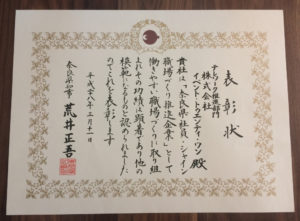 表彰状
テレワーク推進部門
株式会社
イベント・トゥエンティ・ワン 殿
貴社は「奈良県社員・シャイン
職場づくり推進企業」として
働きやすい職場づくりに取り組
まれその功績は顕著であり他の
模範になるものと認められました
のでこれを表彰します
平成二十八年三月十一日
奈良県知事 荒井正吾